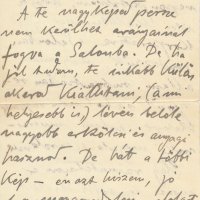 A te nagyképed persze
nem kerülhet arányainál
fogva a Salonba. De ha
jól tudom, te inkább külön
akarod kiállítani, (ami
helyesebb is) lévén belőle
nagyobb erkölcsi és anyagi
hasznod. De hát a többi
kép – én azt hiszem, jó